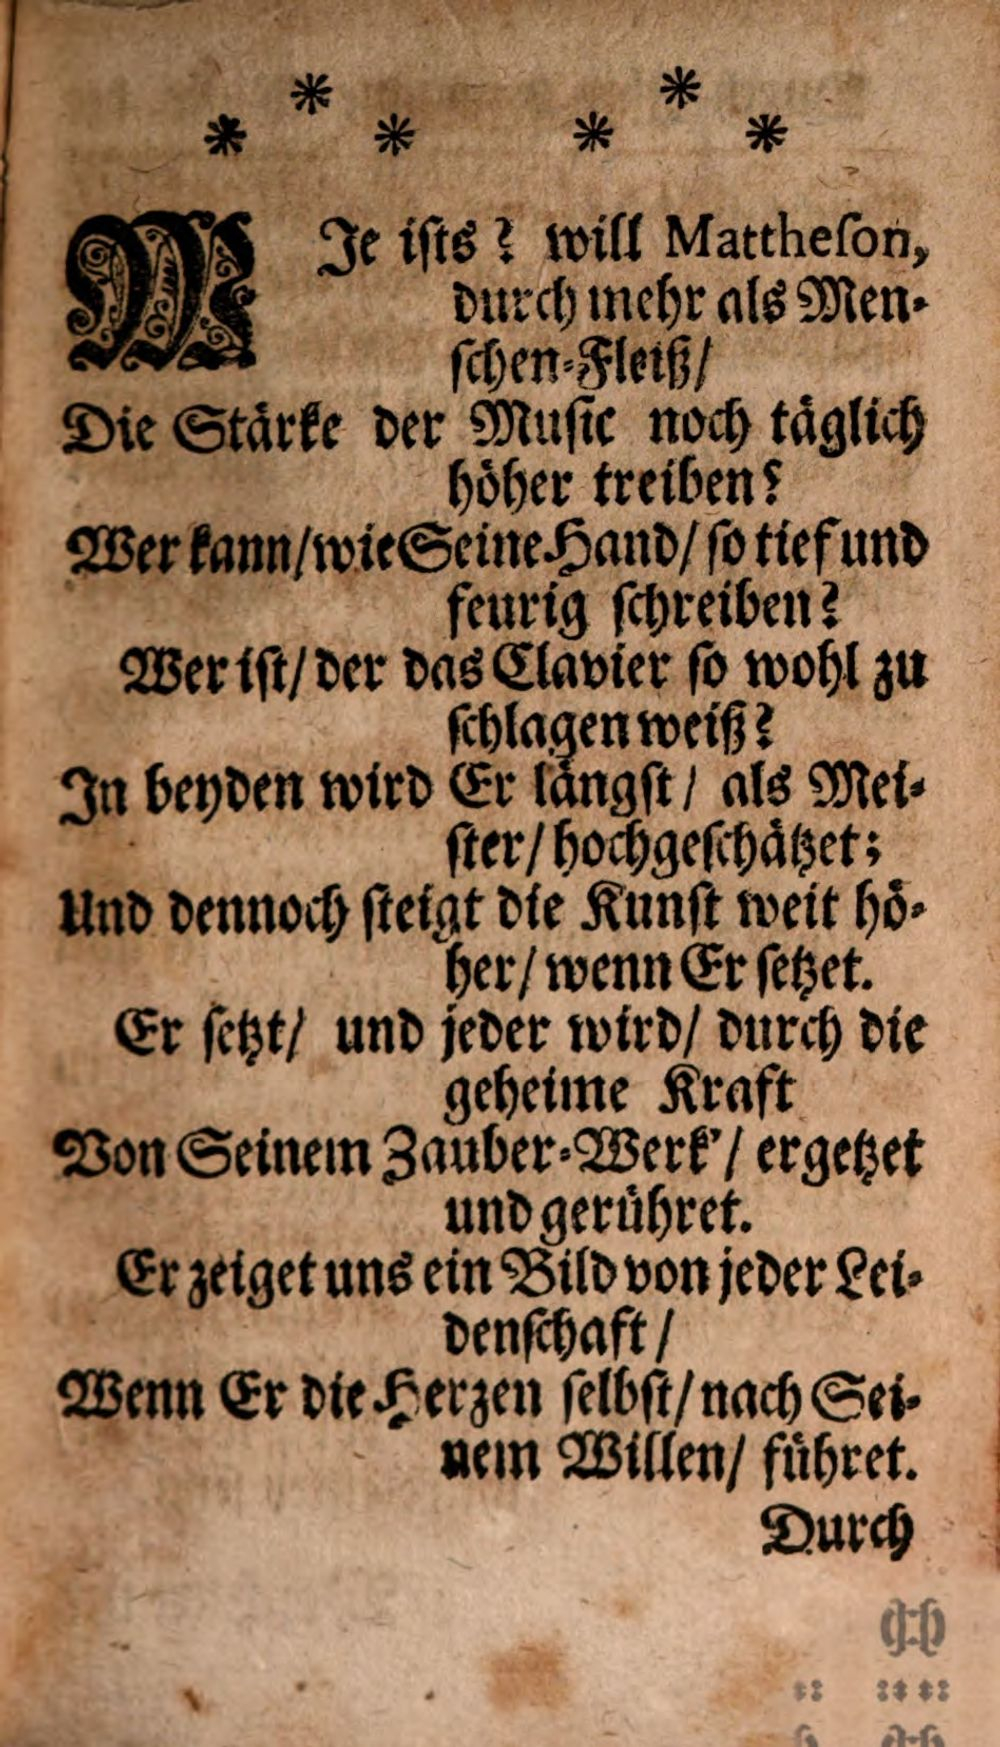 * * * * * *
WJe iſts? will Mattheſon,
durch mehr als Men-
ſchen-Fleiß/
Die Stärke der Muſic noch täglich
höher treiben?
Wer kann/wie Seine Hand/ ſo tief und
feurig ſchreiben?
Wer iſt/ der das Clavier ſo wohl zu
ſchlagen weiß?
In beyden wird Er längſt/ als Mei-
ſter/ hochgeſchätzet;
Und dennoch ſteigt die Kunſt weit hö-
her/ wenn Er ſetzet.
Er ſetzt/ und jeder wird/ durch die
geheime Kraft
Von Seinem Zauber-Werk'/ ergetzet
und gerühret.
Er zeiget uns ein Bild von jeder Lei-
denſchaft/
Wenn Er die Herzen ſelbſt/ nach Sei-
nem Willen/ führet.
Durch